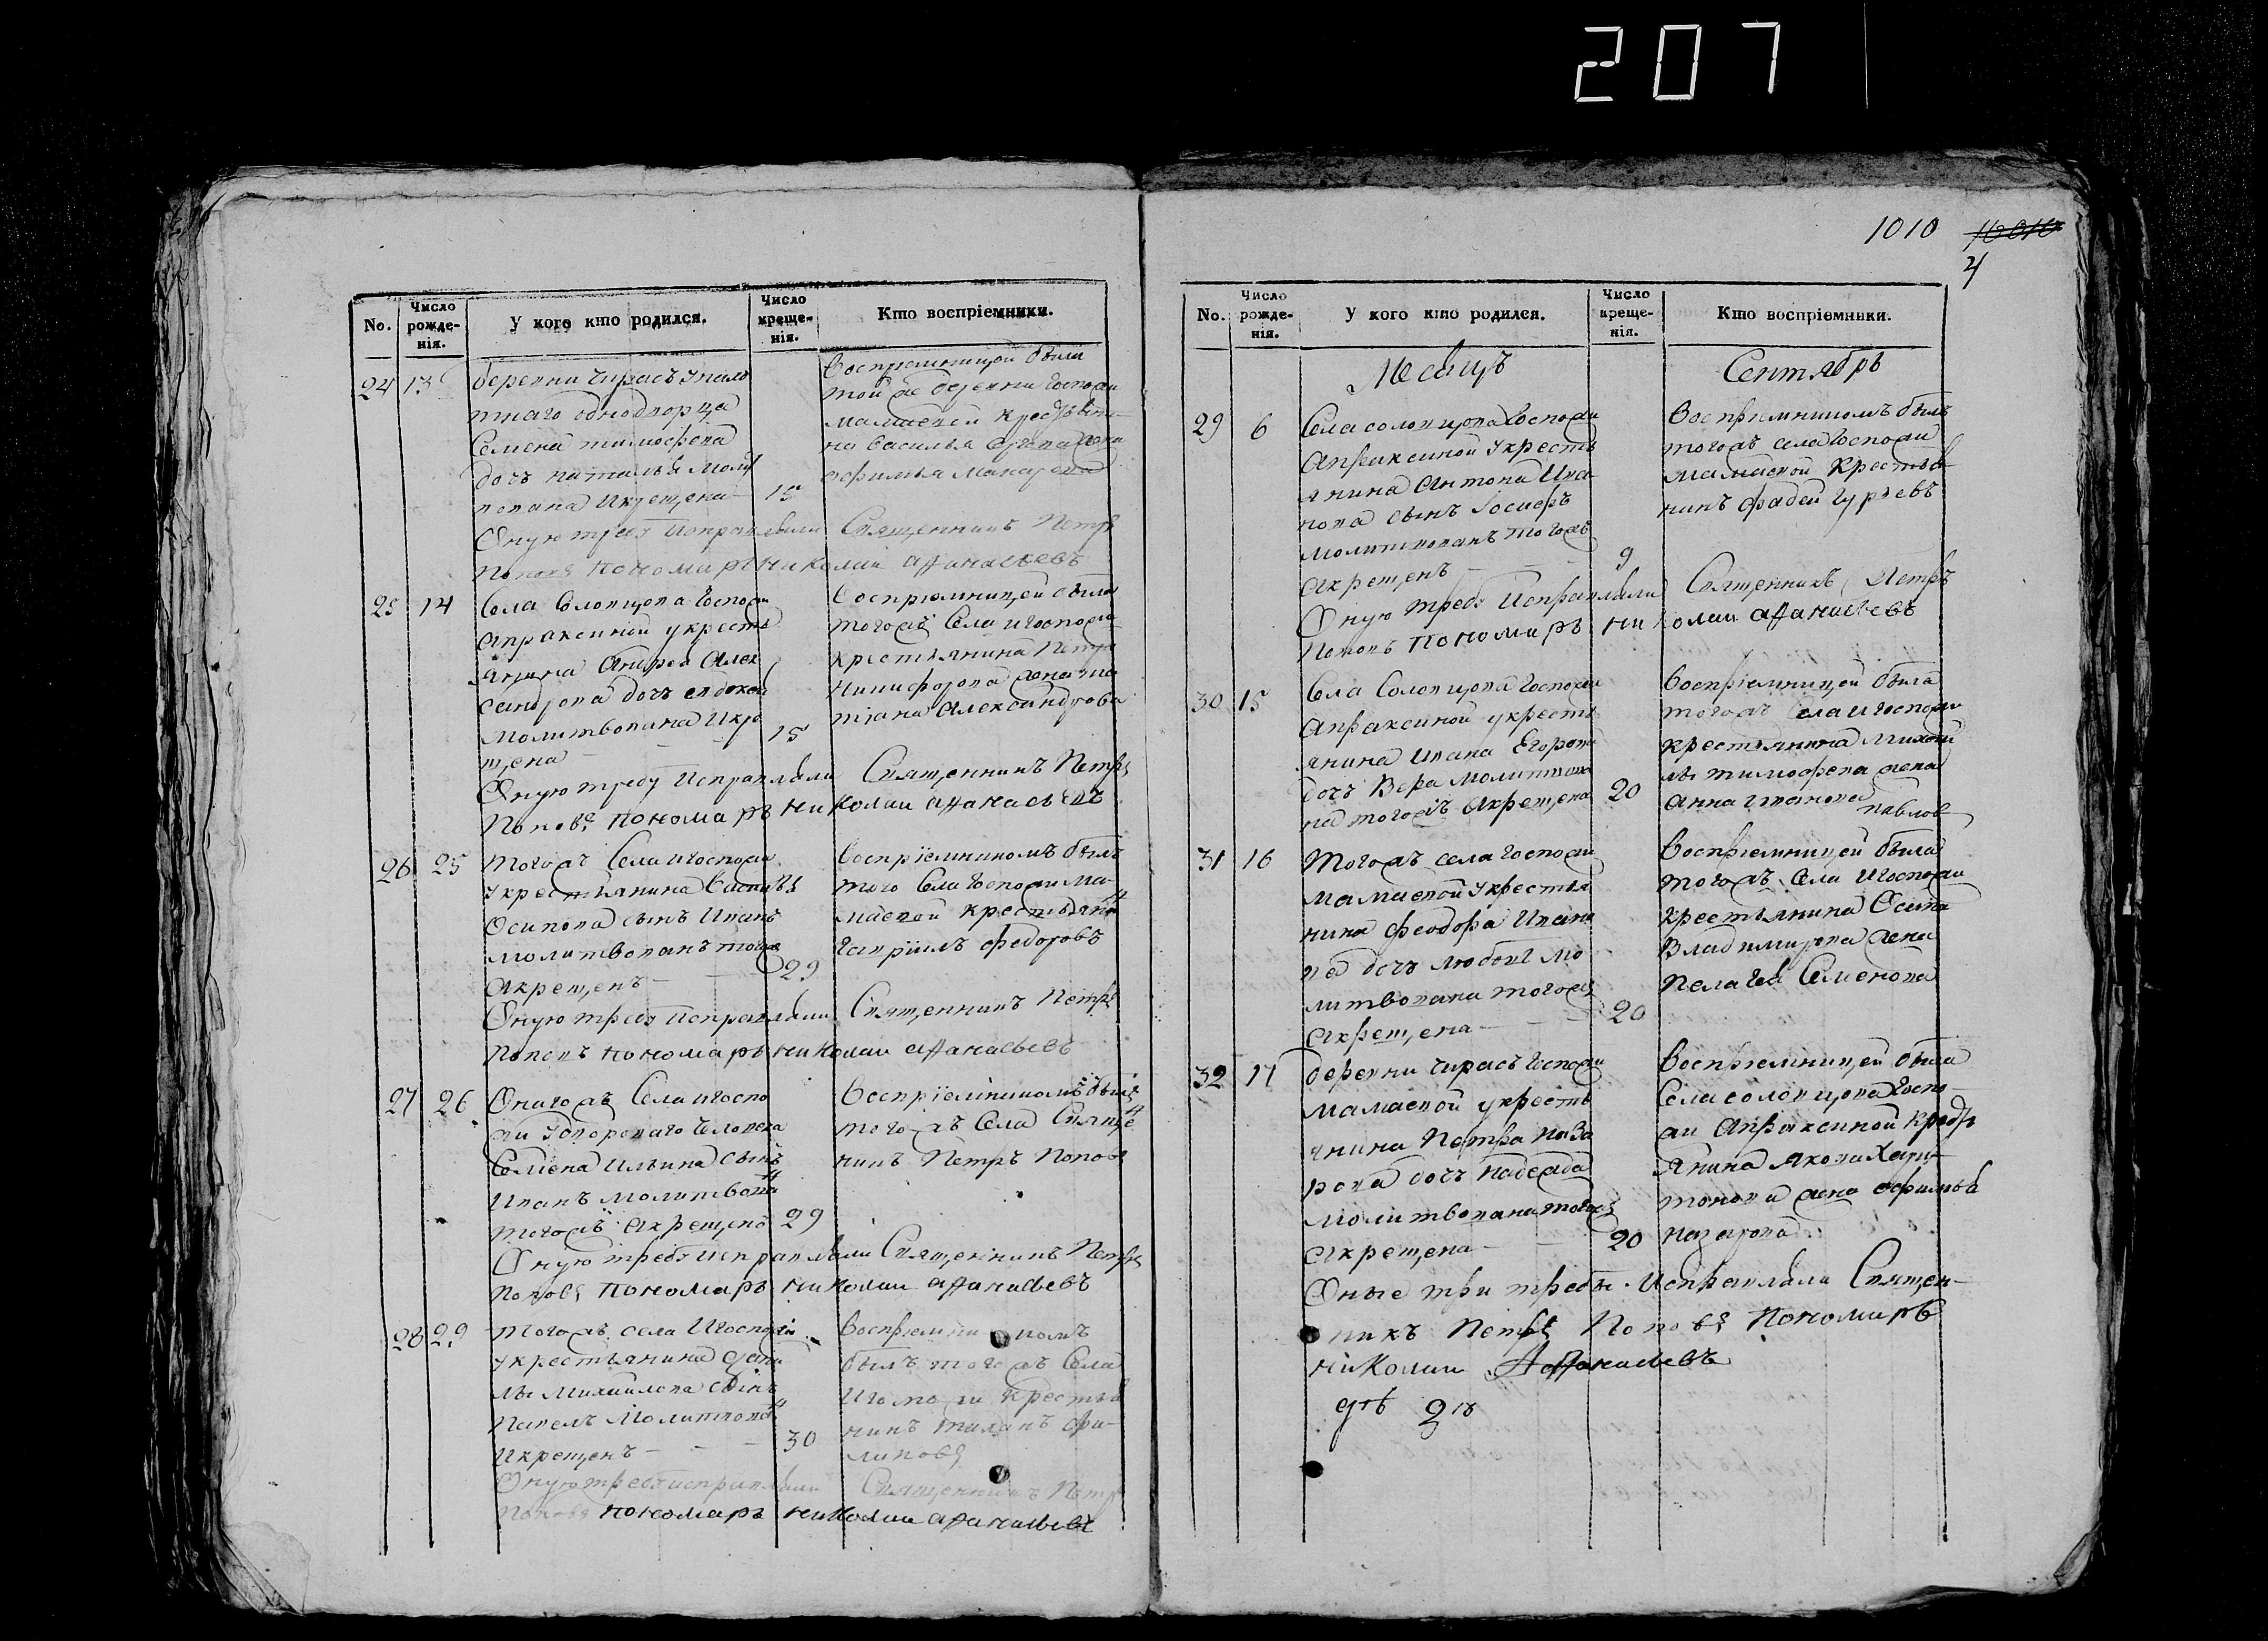 207
No.
Число рожде-нія.
У кого кто родился.
Число креще-нія.
Кто воспріемники.
24 13
деревни
тнаго однодворца
Семена тимофеева
дочь наталья молит
вована Икрещена 15
воспрiемницой была
той же деревни Госпожи
мамаевой
на василья жена
афимья Макарова
Оную требу Исправляли Священникъ Петръ
Поповъ пономарь николай афанасьевъ
25 14
Села Солопцова Госпожи
апраксиной укресть
янина Андрея Алек
сандрова дочь евдокея
молитвована Икре
щена 15
Воспрiемницей была
тогожъ Села игоспожи
крестьянина Петра
Никифорова жена та
тiана Александрова
Оную требу Исправляли Священникъ Петръ
Поповъ пономарь николаи афанасьевъ
26 25
Тогожъ Села игоспожи
укрестьянина Василья
Осипова сынъ Иванъ
молитвованъ тогожъ
Икрещенъ 29
Воспрїемникомъ былъ
того Села Госпожи Ма-
маевой крестьянинъ
Гаврїилъ федоровъ
Оную требу Исправляли Священникъ Петръ
Поповъ пономарь николаи афанасьевъ
27 26
Оногожъ Села игоспо
жи Удвороваго Человека
Семена Ильина Сынъ
Иванъ молитвованъ
тогожъ Икрещенъ 29
Воспрїемникомъ былъ
тогожъ Села Священ
никъ Петръ Поповъ
Оную требу исправляли Священникъ Петръ
Поповъ пономарь николаи афанасьевъ
28 29
Тогожъ села Игоспожи
укрестьянина Дани
лы Михайлова сынъ
Павелъ Молитвованъ
Икрещенъ 30
Воспрiемникомъ
былъ тогожъ Села
Игоспожи крестья
нинъ фи-
липовъ
Оную требу исправляли Священникъ Петръ
Поповъ пономарь николаи афанасьевъ
1010
4
No.
Число рожде-нія.
У кого кто родился.
Число креще-нія.
Кто воспріемники.
Месяцъ Сентябрь
29 6
Села солопцова Госпожи
Апраксиной Укресть
янина Антона Ива
нова сынъ Iосифъ
молитвованъ тогожъ
Икрещенъ 9
Воспрiемникомъ былъ
тогожъ села Госпожи
мамаевой Крестья
нинъ фадей Гурьевъ
Оную требу Исправляли Священникъ Петръ
Поповъ пономарь николаи афанасьевъ
30 15
Села Солопцова Госпожи
Апраксиной укресть
янина Ивана Егорова
дочь Вера Молитвова
на тогожъ Икрещена 20
Воспрiемницей была
тогожъ Села Игоспожи
крестьянина Михай
лы тимофеева жена
Анна Иванова
павлов
31 16
Тогожъ села Госпожи
Мамаевой Укрестья
нина феодора Ивано
ва дочь любовь мо
литвована тогожъ
Икрещена 20
Воспрiемницей была
тогожъ Села Игоспожи
крестьянина Осипа
Владимирова жена
Пелагея Семенова
32 17
деревни Госпожи
Мамаевой укресть
янина Петра Наза
рова дочь надежда
молитвована тогожъ
Икрещена 20
Воспрiемницей была
Села солопцова Госпо-
жи Апраксиной
янина якова Хари-
тонова жена афимья
назарова
Оные три требы Исправляли Священ-
никъ Петръ Поповъ Пономарь
николаи Афанасьевъ